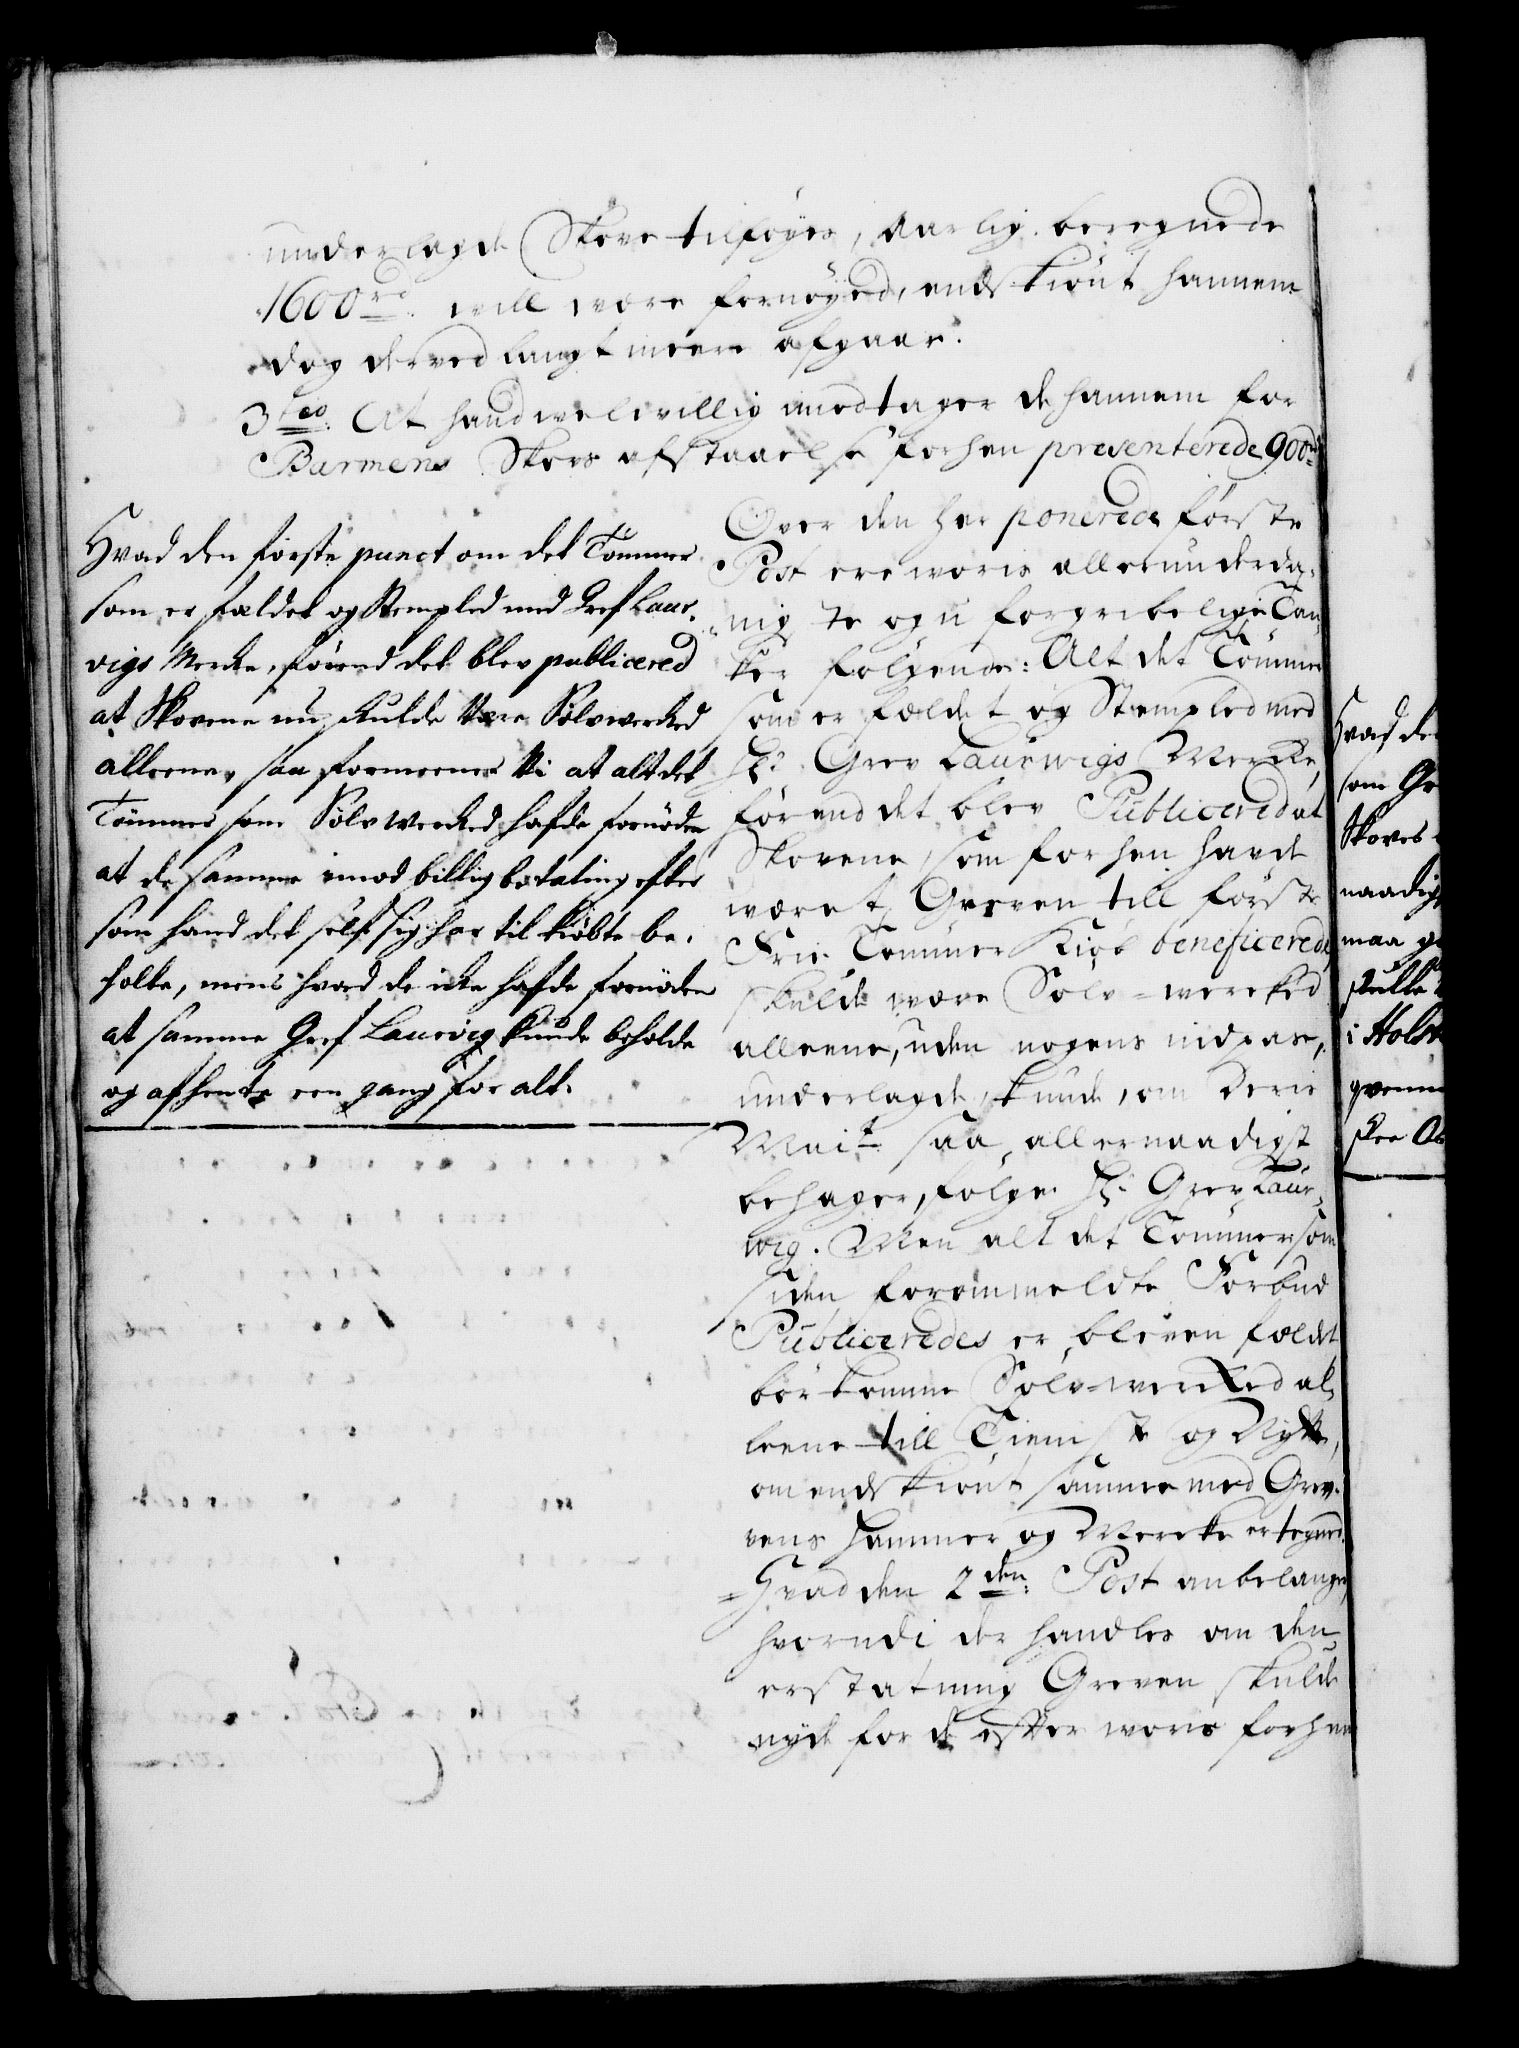 underlagde Skove tilføyes, Aarlig beregnede
1600rd. will være fornøyed, endskiønt hannem
dog derved langt meere afgaar.
3tio. At hand welvillig imodtager de hannem for
Barmens Skovs afstaaelse forhen præsenterede 900rd
Hvad den første punct om det Tømmer
som er fældet og Stempled med Gref Laur-
vigs Mercke, førend det blev publicered
at Skovene nu skulde være Sølvwerked
alleene, saa formeener Vi at alt det
Tømmer som Sølvwerked hafde fornøden
at de samme imod billig betaling efter
som hand det self sig har tilkiøbte be-
holte, mens hvad de icke hafde fornøden
at samme Gref Laurvig kunde beholde
og afhente een gang for alt.
Over den her ponerede første
Post ere woris allerunderda-
nigste og uforgribelige Tan-
ker følgende: Alt det Tømmer
som er fældet og Stempled med
Hr. Grev Laurwigs Mercke,
førend det blev Publicered at
Skovene, som forhen havde
været Greven till første
Frie Tømmer Kiøb beneficerede,
skulde være Sølv-wercked
alleene, uden nogens indpas,
underlagde, kunde, om Deris
Mait. saa allernaadigst
behager, følge Hr. Grev Laur-
wig. Men alt det Tømmer som
siden forommeldte Forbud
Publiceredes er bleven fældet
bør komme Sølv-wercked al-
leene till Tieniste og Nytte,
om endskiønt samme med Gre-
vens Hammer og Mercke er tegned.
Hvad den 2den Post anbelanger,
hvorudi der handles om den
erstatning Greven skulde
nyde for de efter woris forhen
Hvad de
som Gr
Skoves
naadigs
maa g
skulle
i Hols
qvem
skee